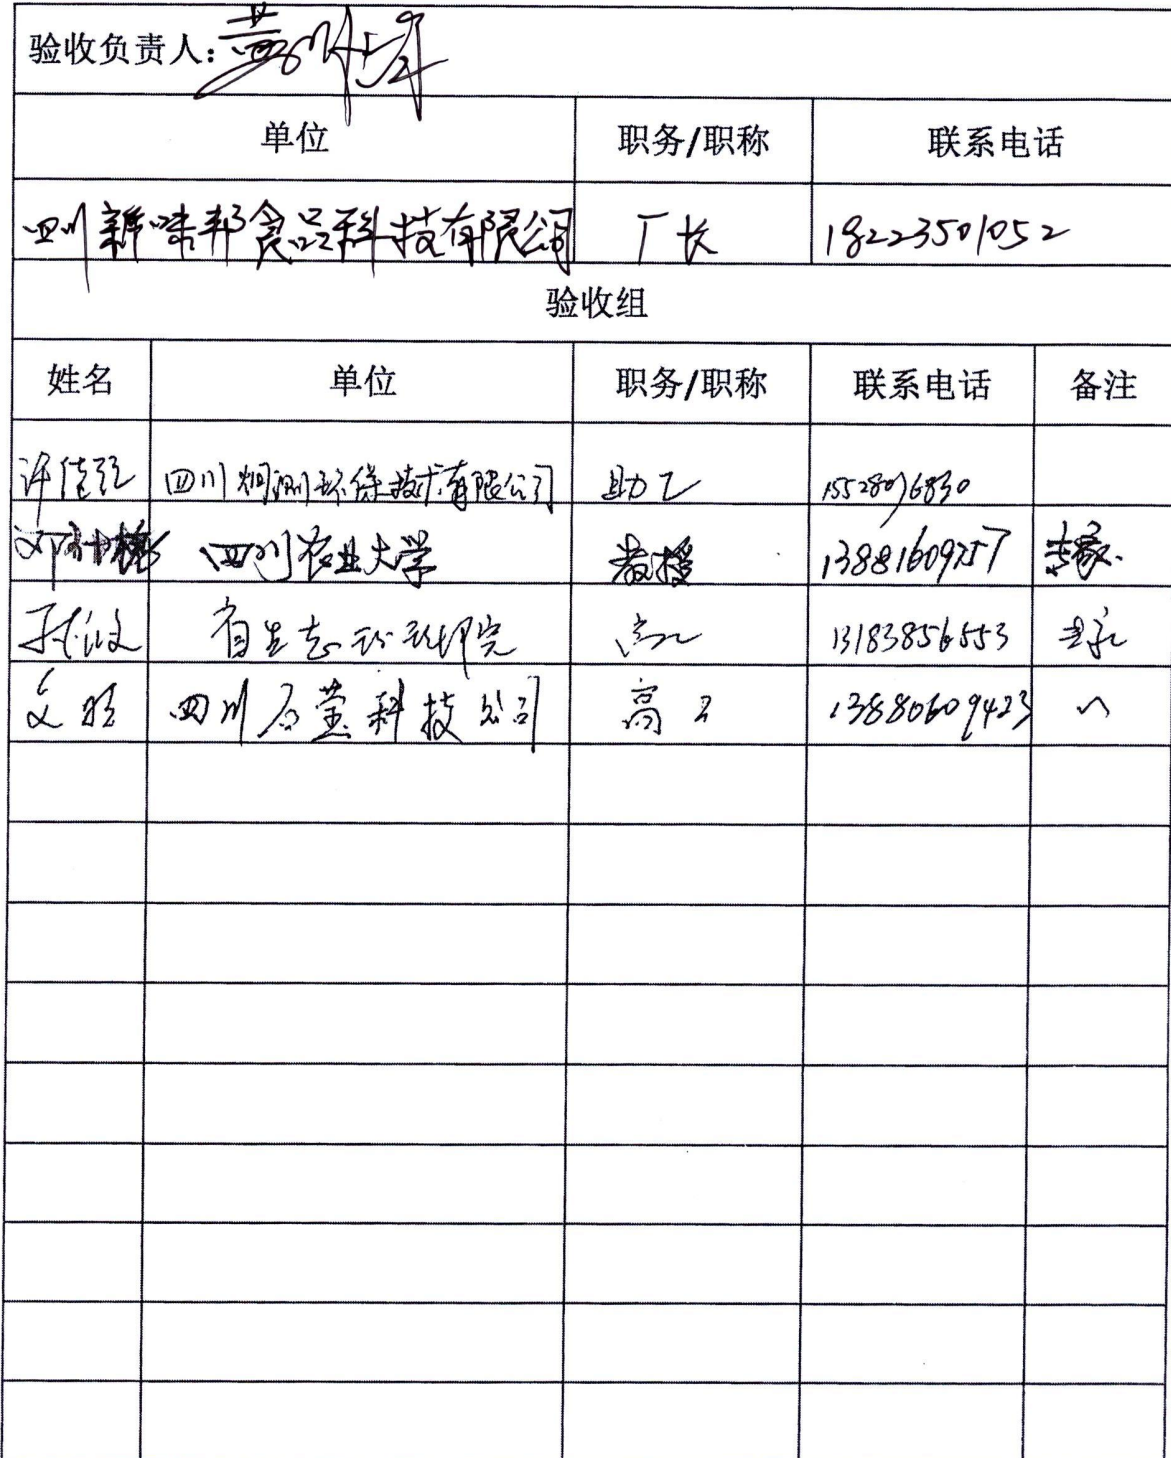 验收负责人:黄
单位 职务/职称 联系电话
四川新味邦食品科技有限公司 厂长 18223501052
验收组
姓名 单位 职务/职称 联系电话 备注
许 四川炯测环保技术有限公司 助工
邓 四川农业大学 教授 专家
省生态环 院 高工 13183856553 专家
文 四川 科技公司 高工 13880609423 〃